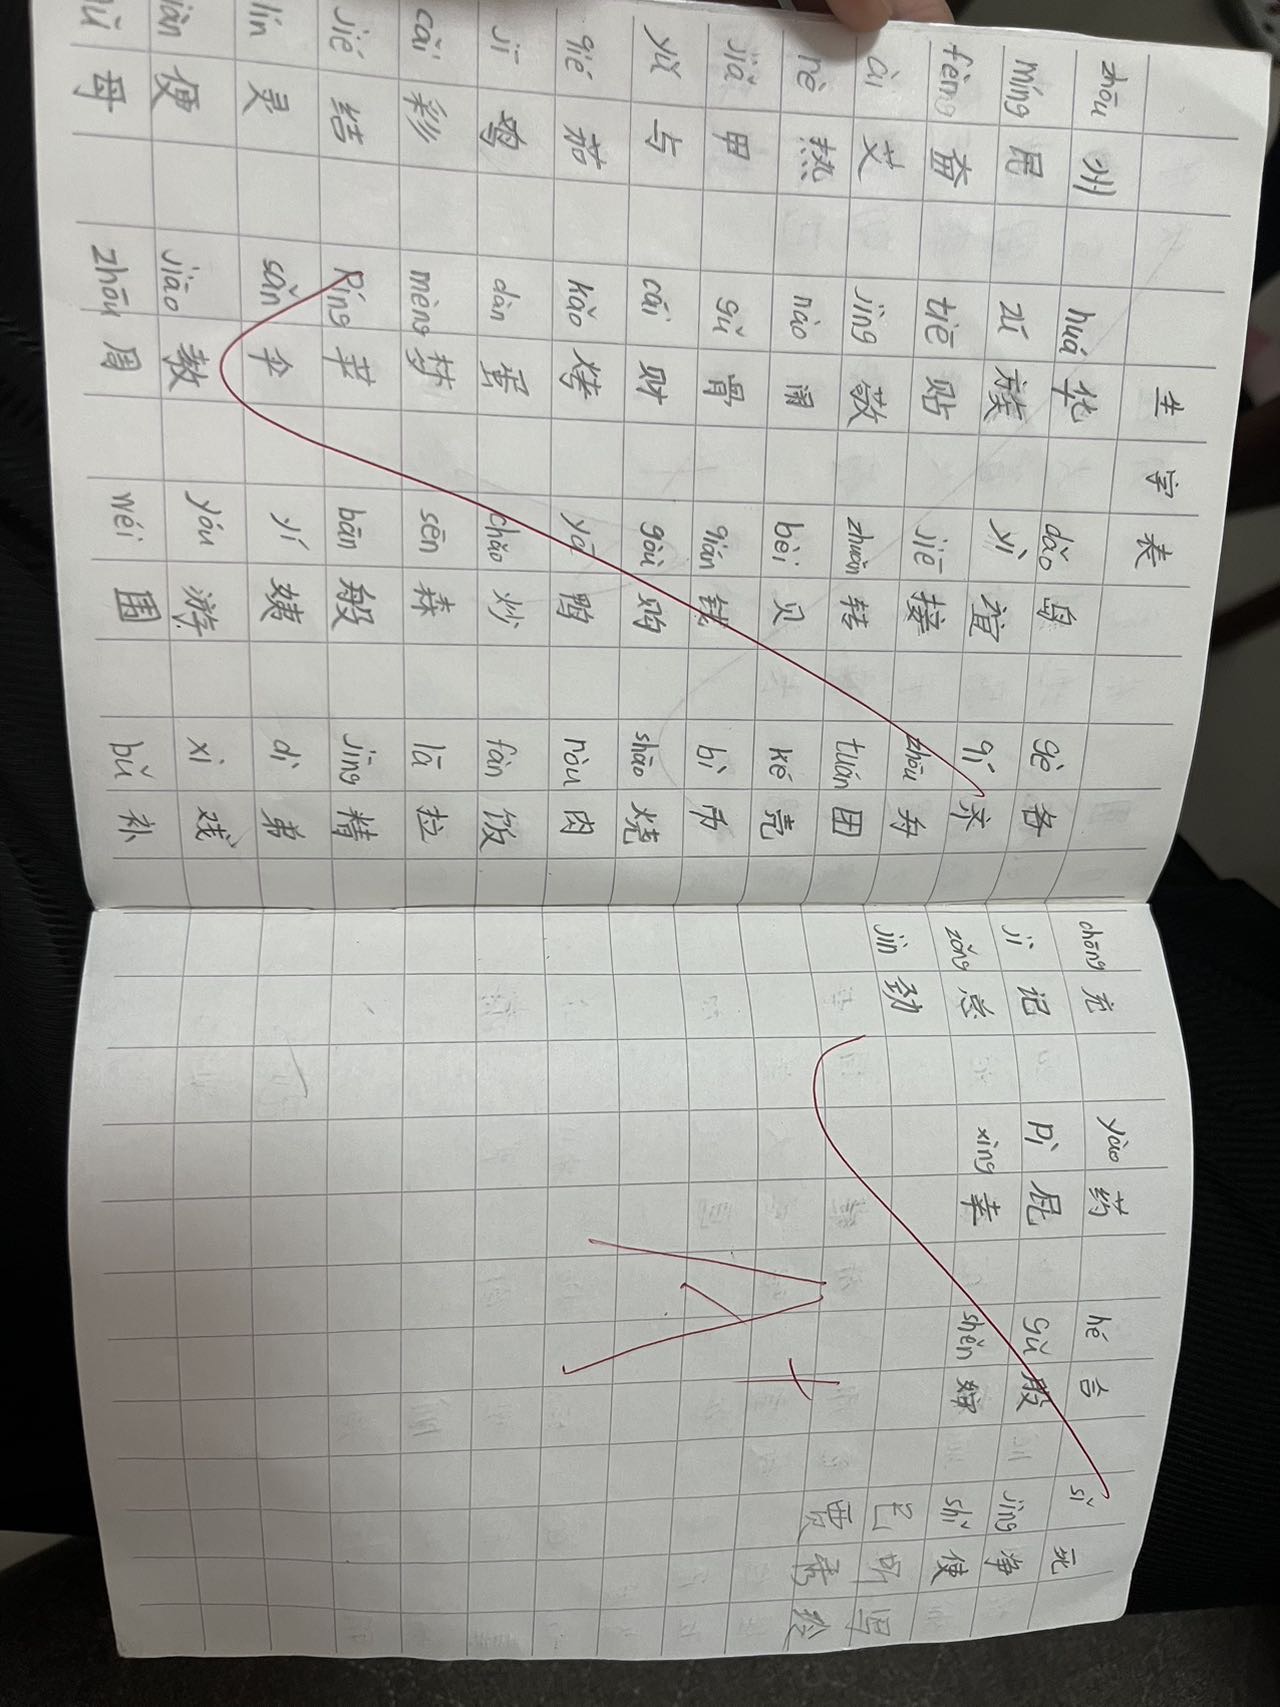 生字表
zhōu 州 huá 华 dǎo 岛 gè 各
míng 民 zú 族 yì 谊 qí 齐
fèng 奋 tiē 贴 jiē 接 zhōu 舟
ài 艾 jìng 敬 zhuàn 转 tuán 团
rè 热 nào 闹 bèi 贝 ké 壳
jiǎ 甲 gǔ 骨 qián 钱 bì 币
yǔ 与 cái 财 gòu 购 shāo 烧
qié 茄 kǎo 烤 yā 鸭 ròu 肉
jī dàn 蛋 chǎo 炒 fàn 饭
cǎi 彩 mèng 梦 sēn 森 lā 拉
jié 结 Píng 苹 bān 般 jīng 精
lín 灵 sǎn 伞 yí 姨 dì 弟
便 jiāo 教 yóu 游 xì 戏
母 zhōu 周 wéi 围 bǔ 补
chōng 充 yào 药 hé 合 sǐ 死
jì 记 pì 屁 gǔ 股 jìng 净
zǒng 总 xìng 幸 shěn 婶 shǐ 使
jìn 劲 已听写
贾秀玲
A+